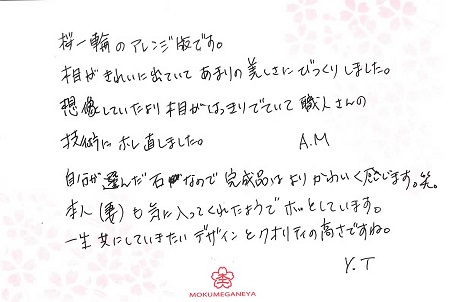 桜一輪のアレンジ版です。
木目がきれいに出ていてあまりの美しさにびっくりしました。
想像していたより木目がはっきりでていて職人さんの
技術にホレ直しました。 A.M
自分が選んだ石なので完成品はよりかわいく感じます。笑。
本人(妻)も気に入ってくれたようでホッとしています。
一生共にしていきたいデザインとクオリティの高さですね。
Y.T
MOKUMEGANEYA